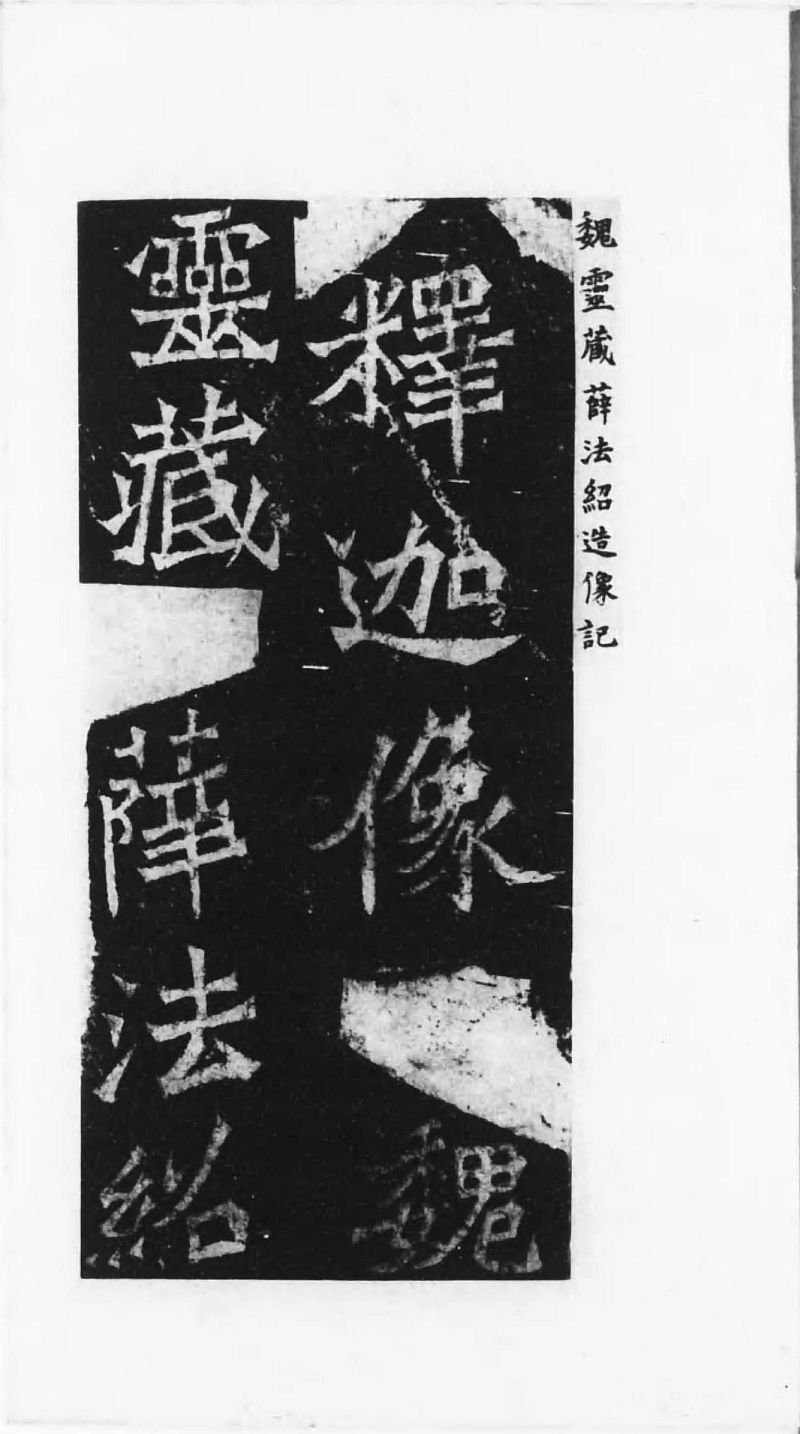 魏靈藏薛法紹造像記
釋迦像魏
靈藏薛法紹